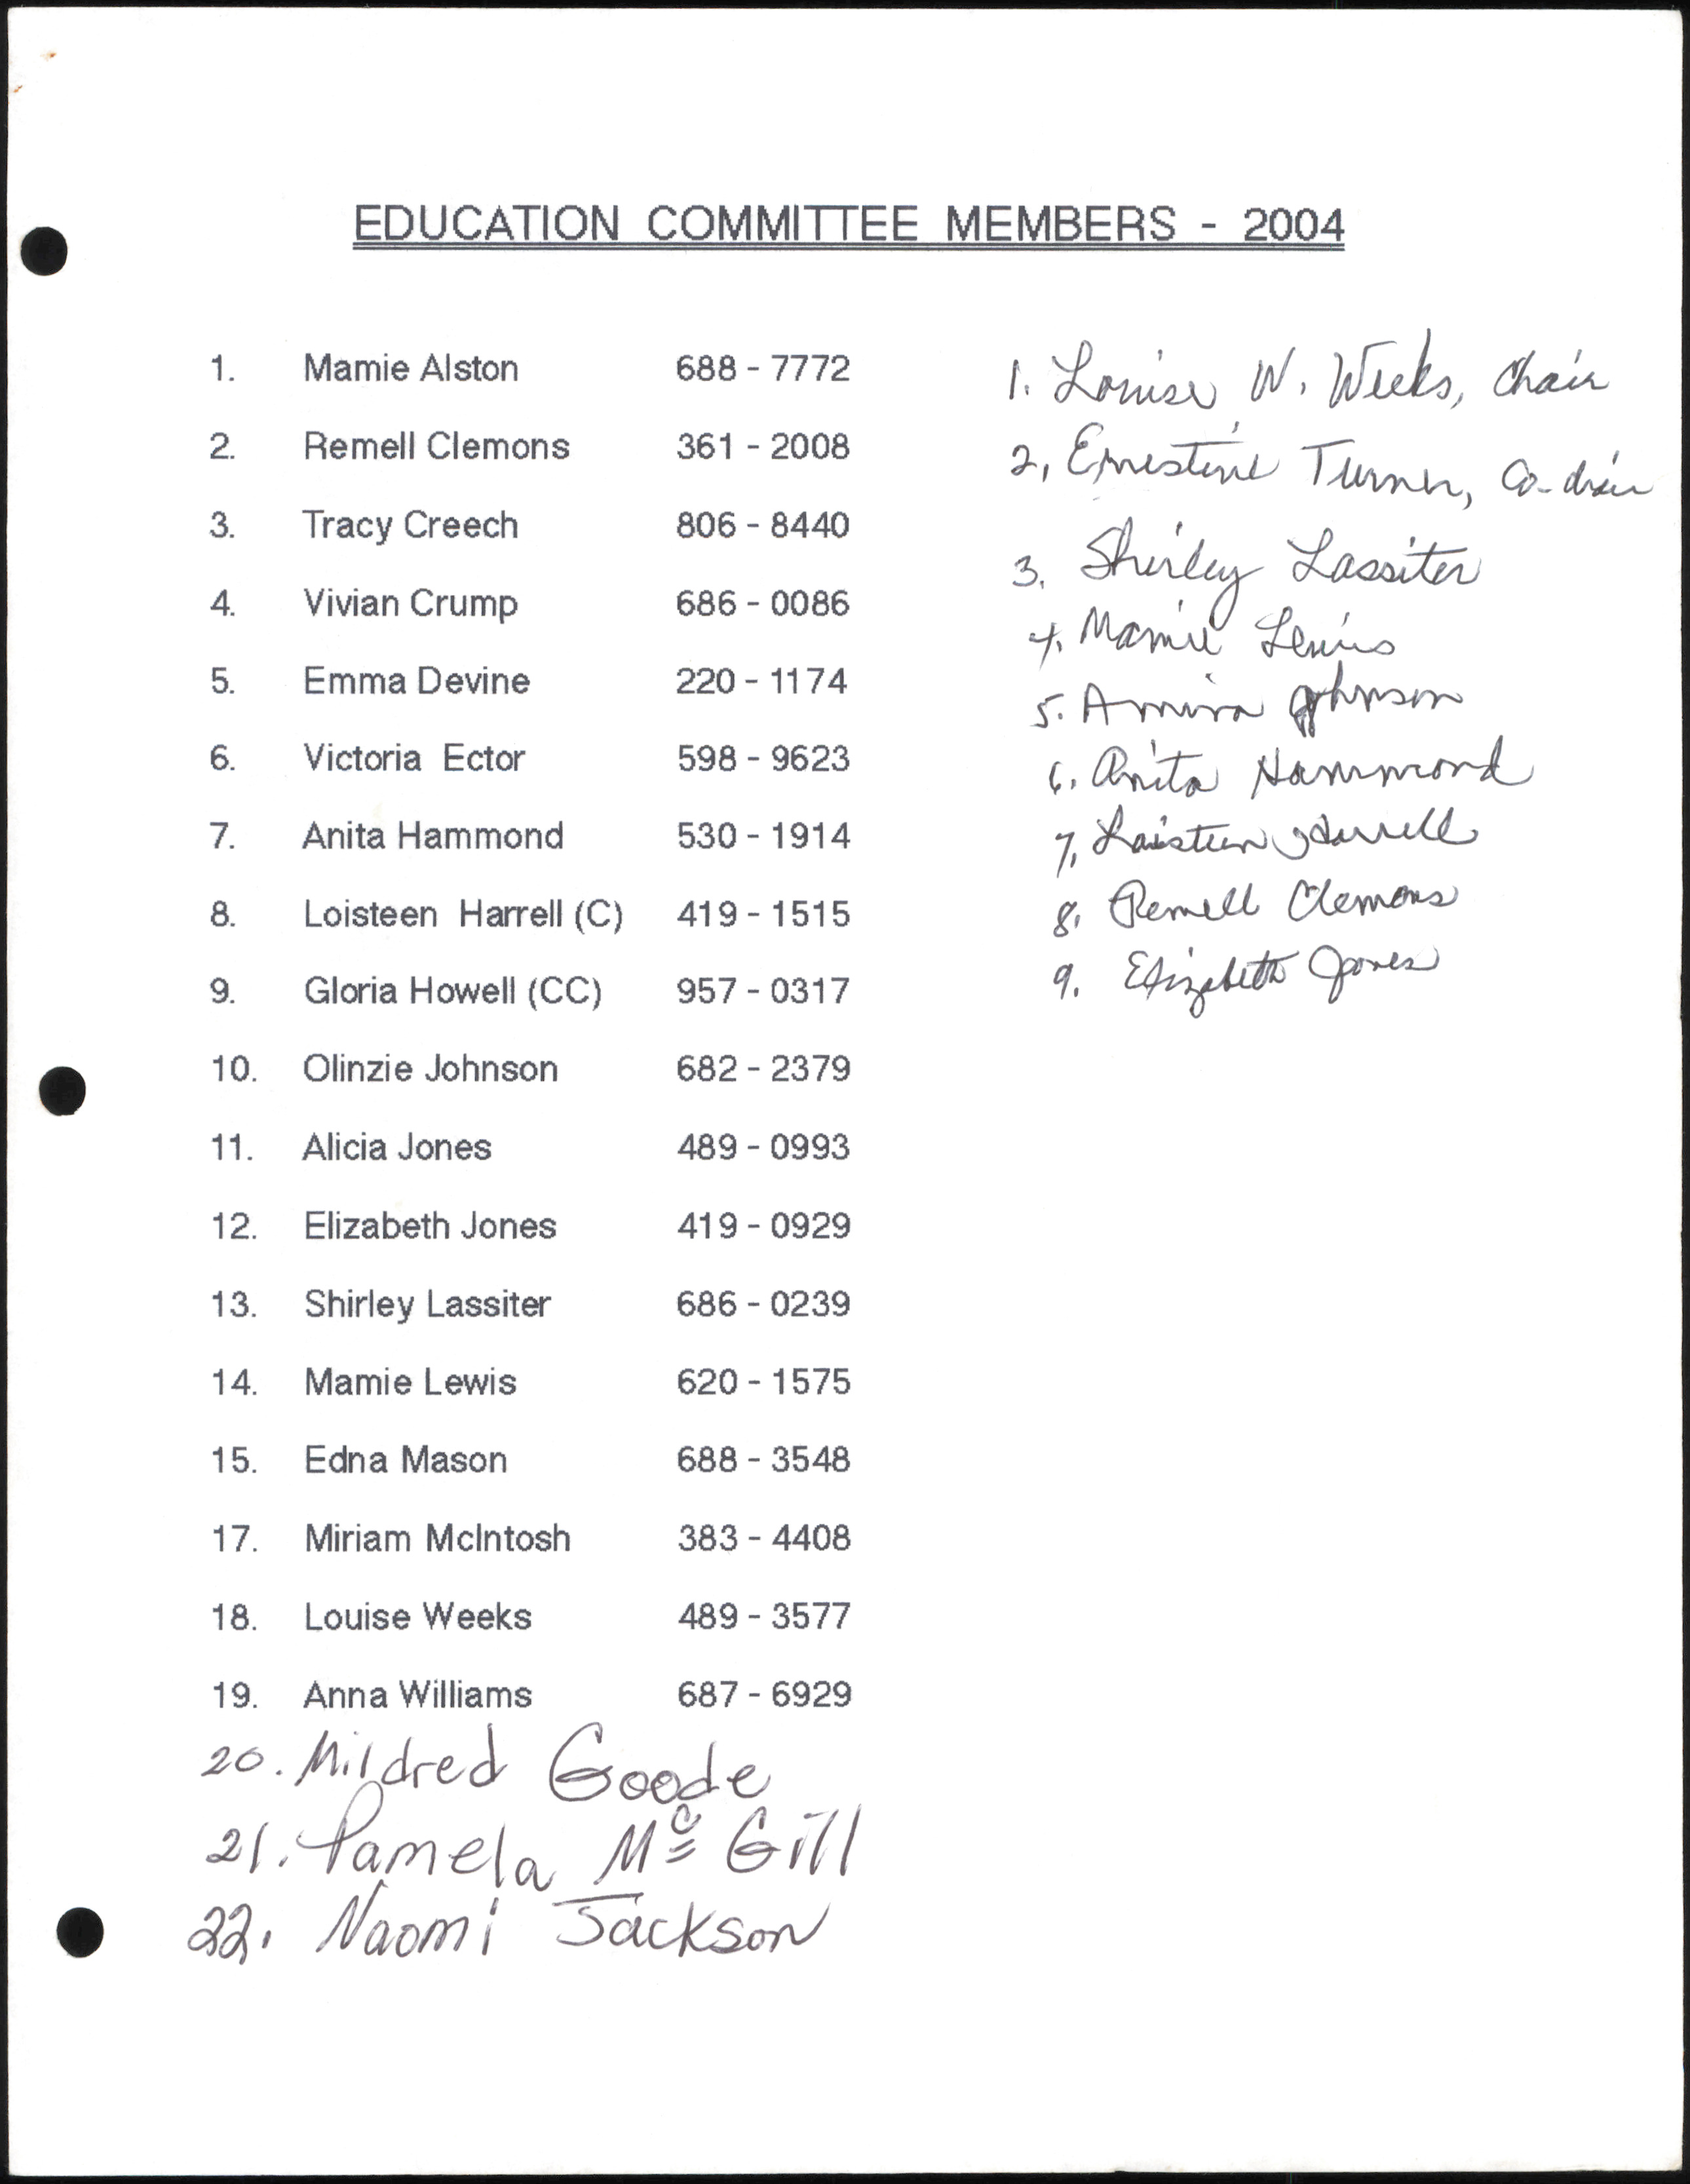 EDUCATION COMMITTEE MEMBERS - 2004
1. Mamie Alston 688 - 7772
2. Remell Clemons 361 - 2008
3. Tracy Creech 806 - 8440
4. Vivian Crump 686 - 0086
5. Emma Devine 220 - 1174
6. Victoria Ector 598 - 9623
7. Anita Hammond 530 - 1914
8. Loisteen Harrell (C) 419 - 1515
9. Gloria Howell (CC) 957 - 0317
10. Olinzie Johnson 682 - 2379
11. Alicia Jones 489 - 0993
12. Elizabeth Jones 419 - 0929
13. Shirley Lassiter 686 - 0239
14. Mamie Lewis 620 - 1575
15. Edna Mason 688 - 3548
17. Miriam McIntosh 383 - 4408
18. Louise Weeks 489 - 3577
19. Anna Williams 687 - 6929
20. Mildred Goode
21. Pamela Mc Gill
22. Naomi Jackson
1. Louise W. Weeks, Chair
2, Ernestine Turner, Co-chair
3. Shirley Lassiter
4. Mamie Lewis
5. Johnson
6. Anita Hammond
7, Loisteen Harrell
8. Remell Clemons
9. Elizabeth Jones